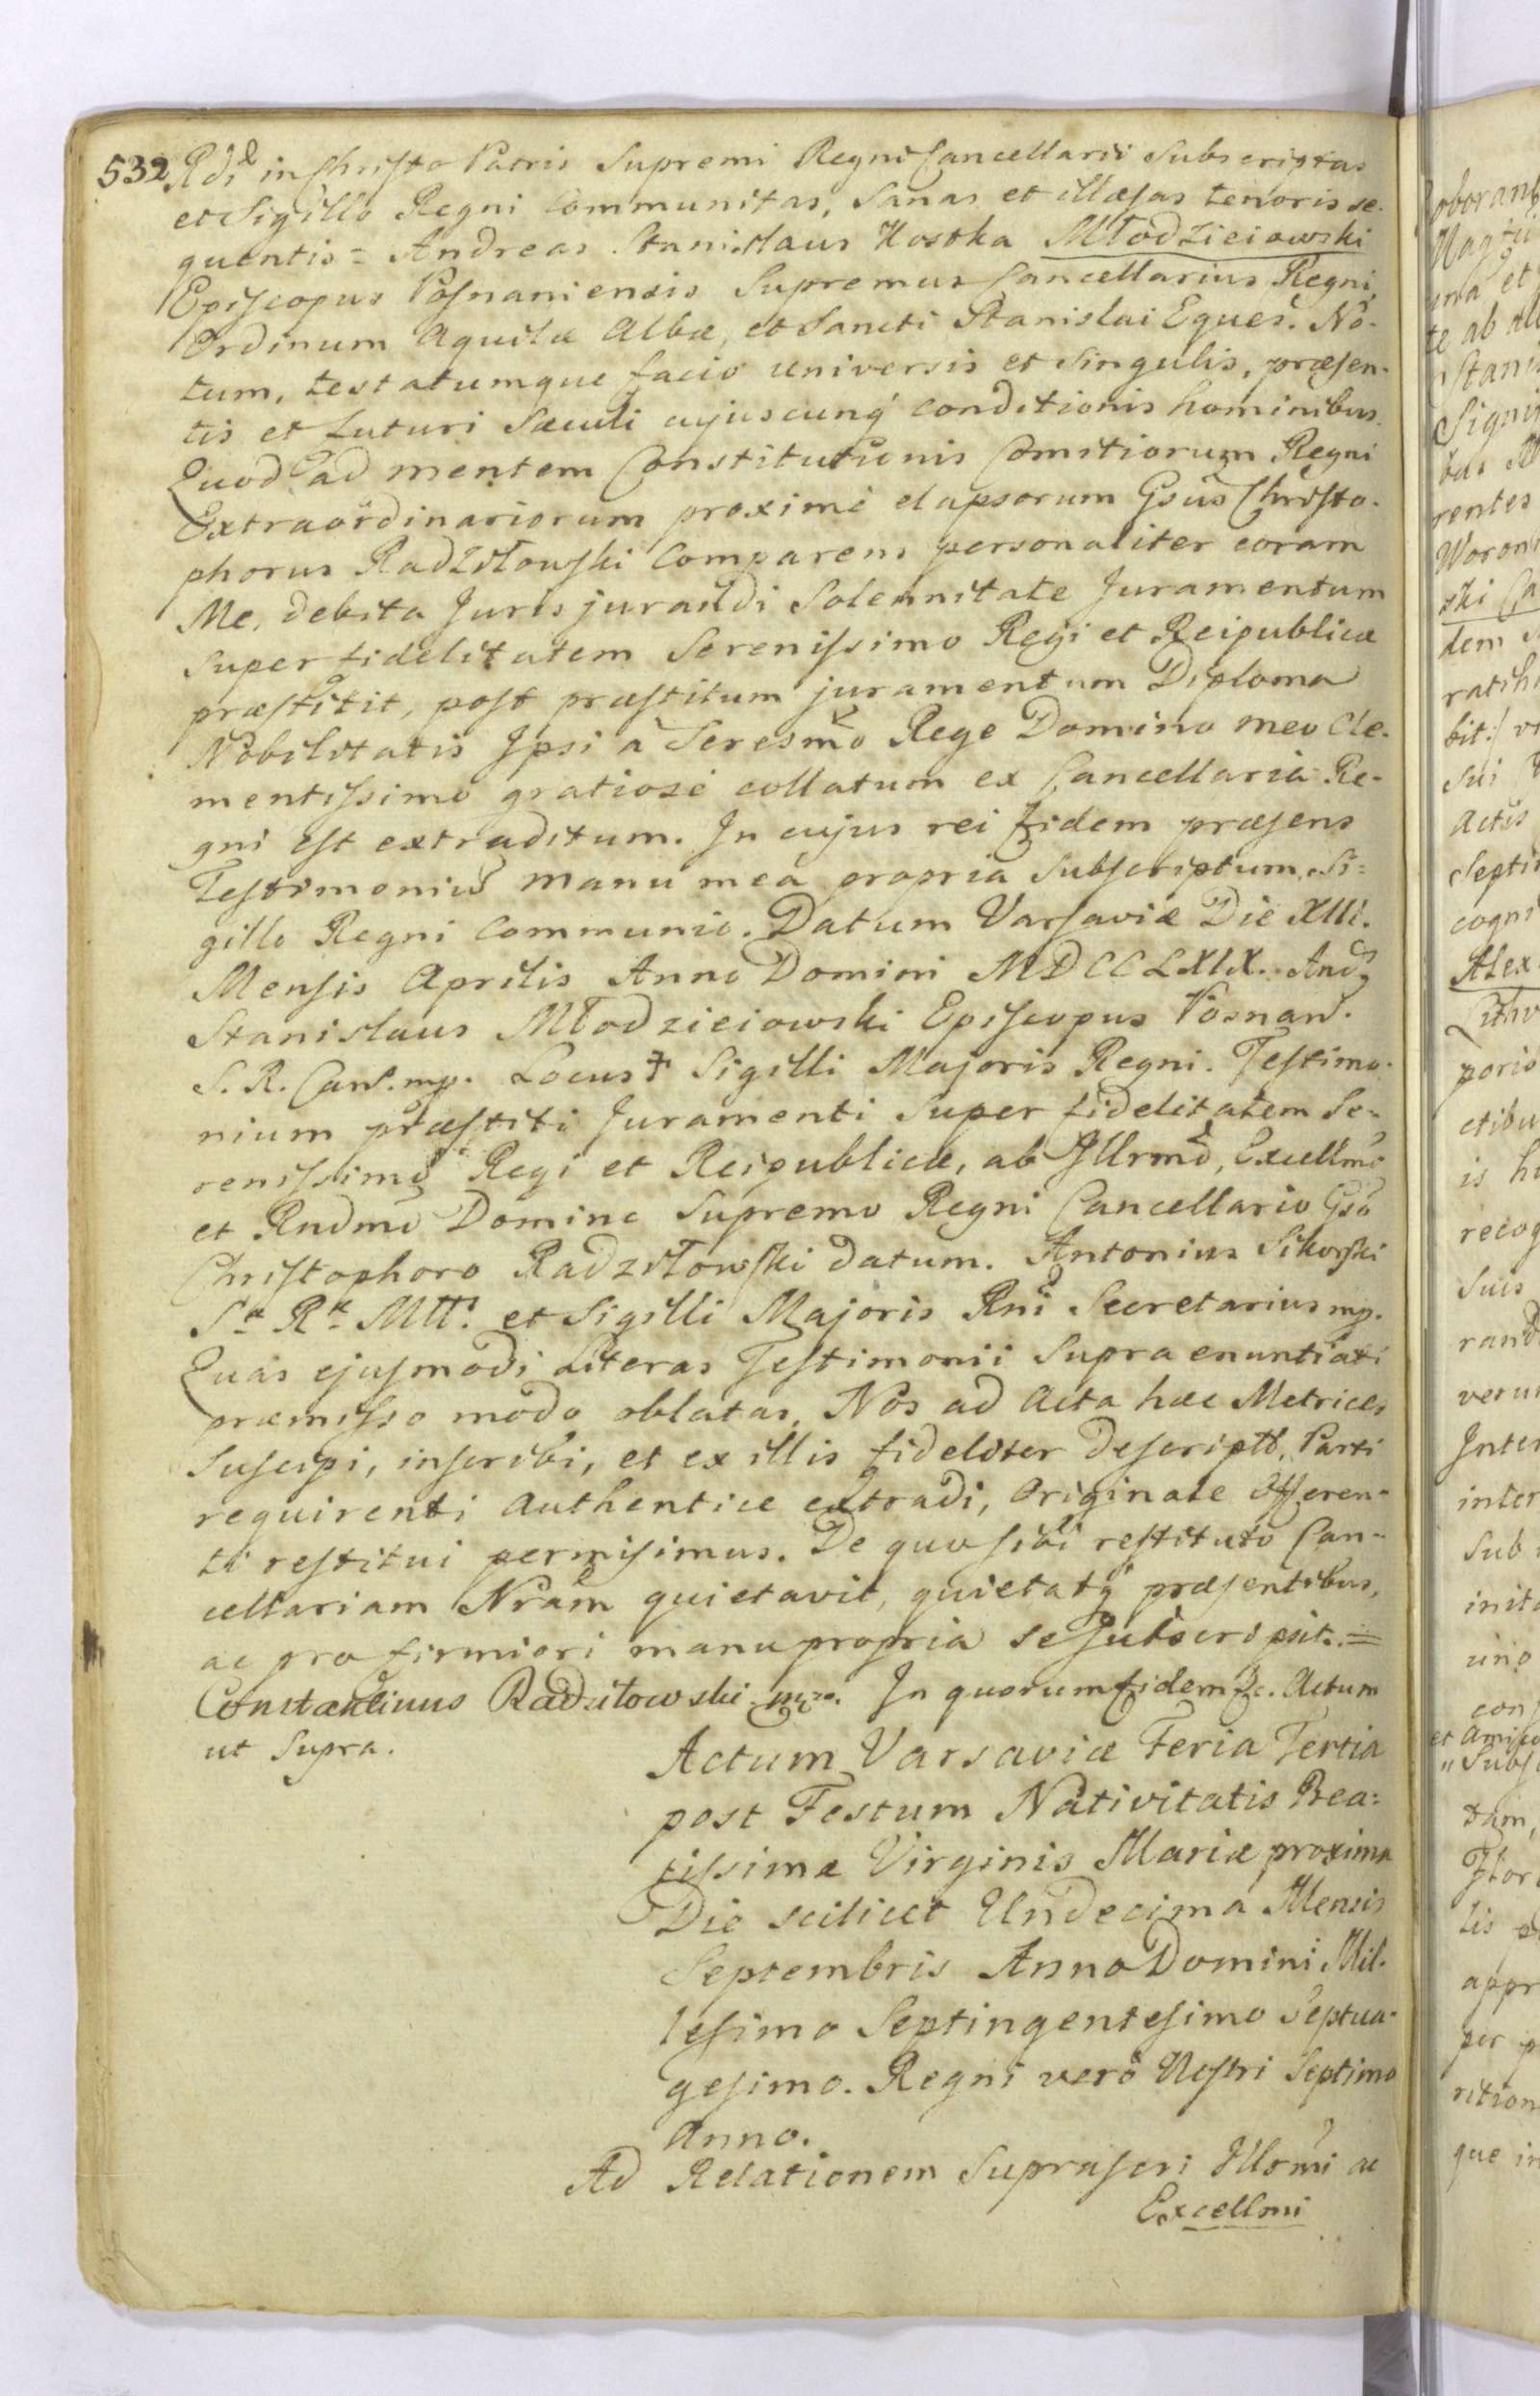 532 Rdi in Christo Patris Supremi Regni Cancellarii Subscriptas
et Sigillo Regni Communitas, Sanas et illæsas tenoris se-
quentis = Andreas Stanislaus Kostka Młodzieiowski
Episcopus Posnaniensis Supremus Cancellarius Regni,
Ordinum Aquilæ Albæ, et Sancti Stanislai Eques. No-
tum, testatumque facio universis et Singulis, præsen-
tis et futuri Sæculi cujuscunq conditionis hominibus.
Quod ad mentem Constitutionis Comitiorum Regni
Extraordinariorum proximè elapsorum Gsus Christo-
phorus Radziłowski Comparens personaliter coram
Me, debita Juris jurandi Solennitate Juramentum
Super fidelitatem Serenissimo Regi et Reipublicæ
præstitit, post præstitum juramentum Diploma
Nobilitatis Ipsi à Seresmo Rege Domino meo Cle-
mentissimo gratiosè collatum ex Cancellaria Re-
gni est extraditum. In cujus rei fidem præsens
Testimoniu manu meâ propria Subscriptum, Si-
gillo Regni Communio. Datum Varsaviæ Die XIII.
Mensis Aprilis Anno Domini MDCCLXIX. Andr
Stanislaus Młodzieiowski Episcopus Posnan.
S. R. Canc. mp. Locus ✝ Sigilli Majoris Regni. Testimo-
nium præstiti Juramenti Super fidelitatem Se-
renissimo Regi et Reipublicæ, ab Illrmo, Excellmo
et Rndmo Domino Supremo Regni Cancellario Gso
Christophoro Radziłowski datum. Antonius Sikorski
Sæ Ræ Mttis et Sigilli Majoris Rni Secretarius mp.
Quas ejusmodi Literas Testimonii Supra enuntiati
præmisso modo oblatas, Nos ad Acta hæc Metrices
Suscipi, inscribi, et ex illis fideliter descriptt. Parti
requirenti Authenticè extradi, Originale Offeren-
ti restitui permisimus. De quo sibi restituto Can-
cellariam Nram quietavit, quietatq præsentibus,
ac pro firmiori manu propria se Subscripsit. =
Constantinus Radziłowski mp. In quorum fidem &c. Actum
ut Supra.
Actum Varsaviæ Feria Tertia
post Festum Nativitatis Bea-
tissimæ Virginis Mariæ proxima
Die scilicet Undecima Mensis
Septembris Anno Domini Mil-
lesimo Septingentesimo Septua-
gesimo. Regni verò Nostri Septimo
Anno.
Ad Relationem Suprascri Illrmi ac
Excellmi